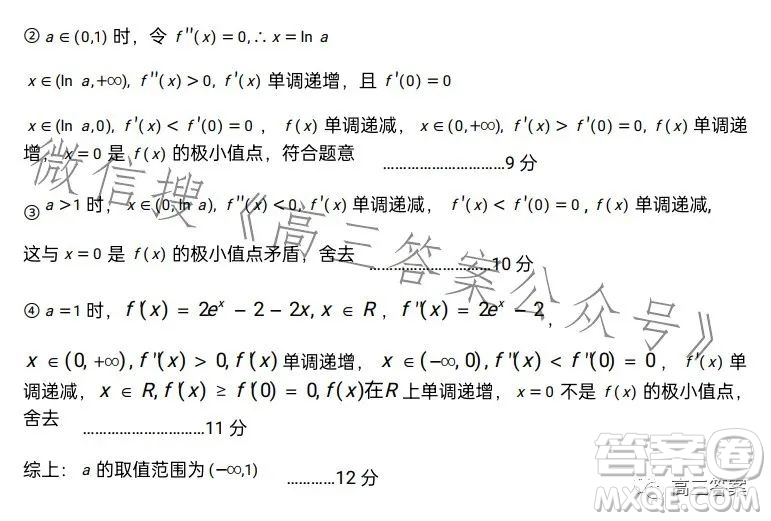 ② a∈(0,1) 时，令 f''(x)=0,∴x=ln a
x∈(ln a,+∞), f''(x)>0, f'(x) 单调递增，且 f'(0)=0
x∈(ln a,0), f'(x)<f'(0)=0 ， f(x) 单调递减， x∈(0,+∞), f'(x)>f'(0)=0, f(x) 单调递
增， x=0 是 f(x) 的极小值点，符合题意 ..............................9 分
③ a>1 时， x∈(0,ln a), f''(x)<0, f'(x) 单调递减， f'(x)<f'(0)=0 , f(x) 单调递减,
这与 x=0 是 f(x) 的极小值点矛盾，舍去 ..............................10 分
④ a=1 时， f'(x) = 2eˣ − 2 − 2x, x ∈ R ， f''(x) = 2eˣ − 2 ，
x ∈ (0, +∞), f''(x) > 0, f'(x) 单调递增， x ∈ (−∞, 0), f''(x) < f''(0) = 0 ， f'(x) 单
调递减， x ∈ R, f'(x) ≥ f'(0) = 0, f(x)在R 上单调递增， x=0 不是 f(x) 的极小值点，
舍去 ..............................11 分
综上： a 的取值范围为 (−∞,1) ............12 分
微信搜《高三答案公众号》
答案圈
高三答案
MXQE.COM